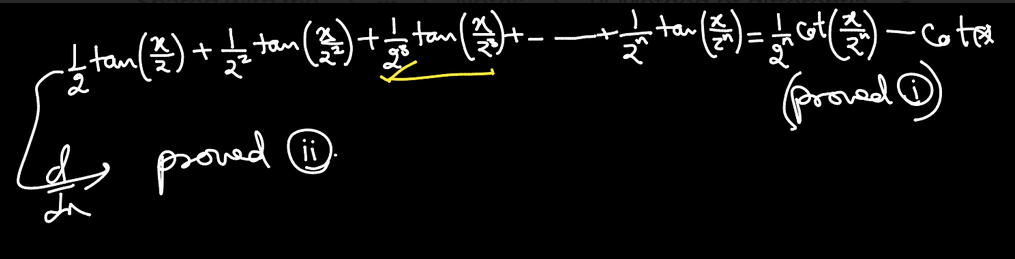 1/2 tan(x/2) + 1/2² tan(x/2²) + 1/2³ tan(x/2³) + - — + 1/2ⁿ tan(x/2ⁿ) = 1/2ⁿ cot(x/2ⁿ) - cotx
(proved i)
d/dx proved ii.